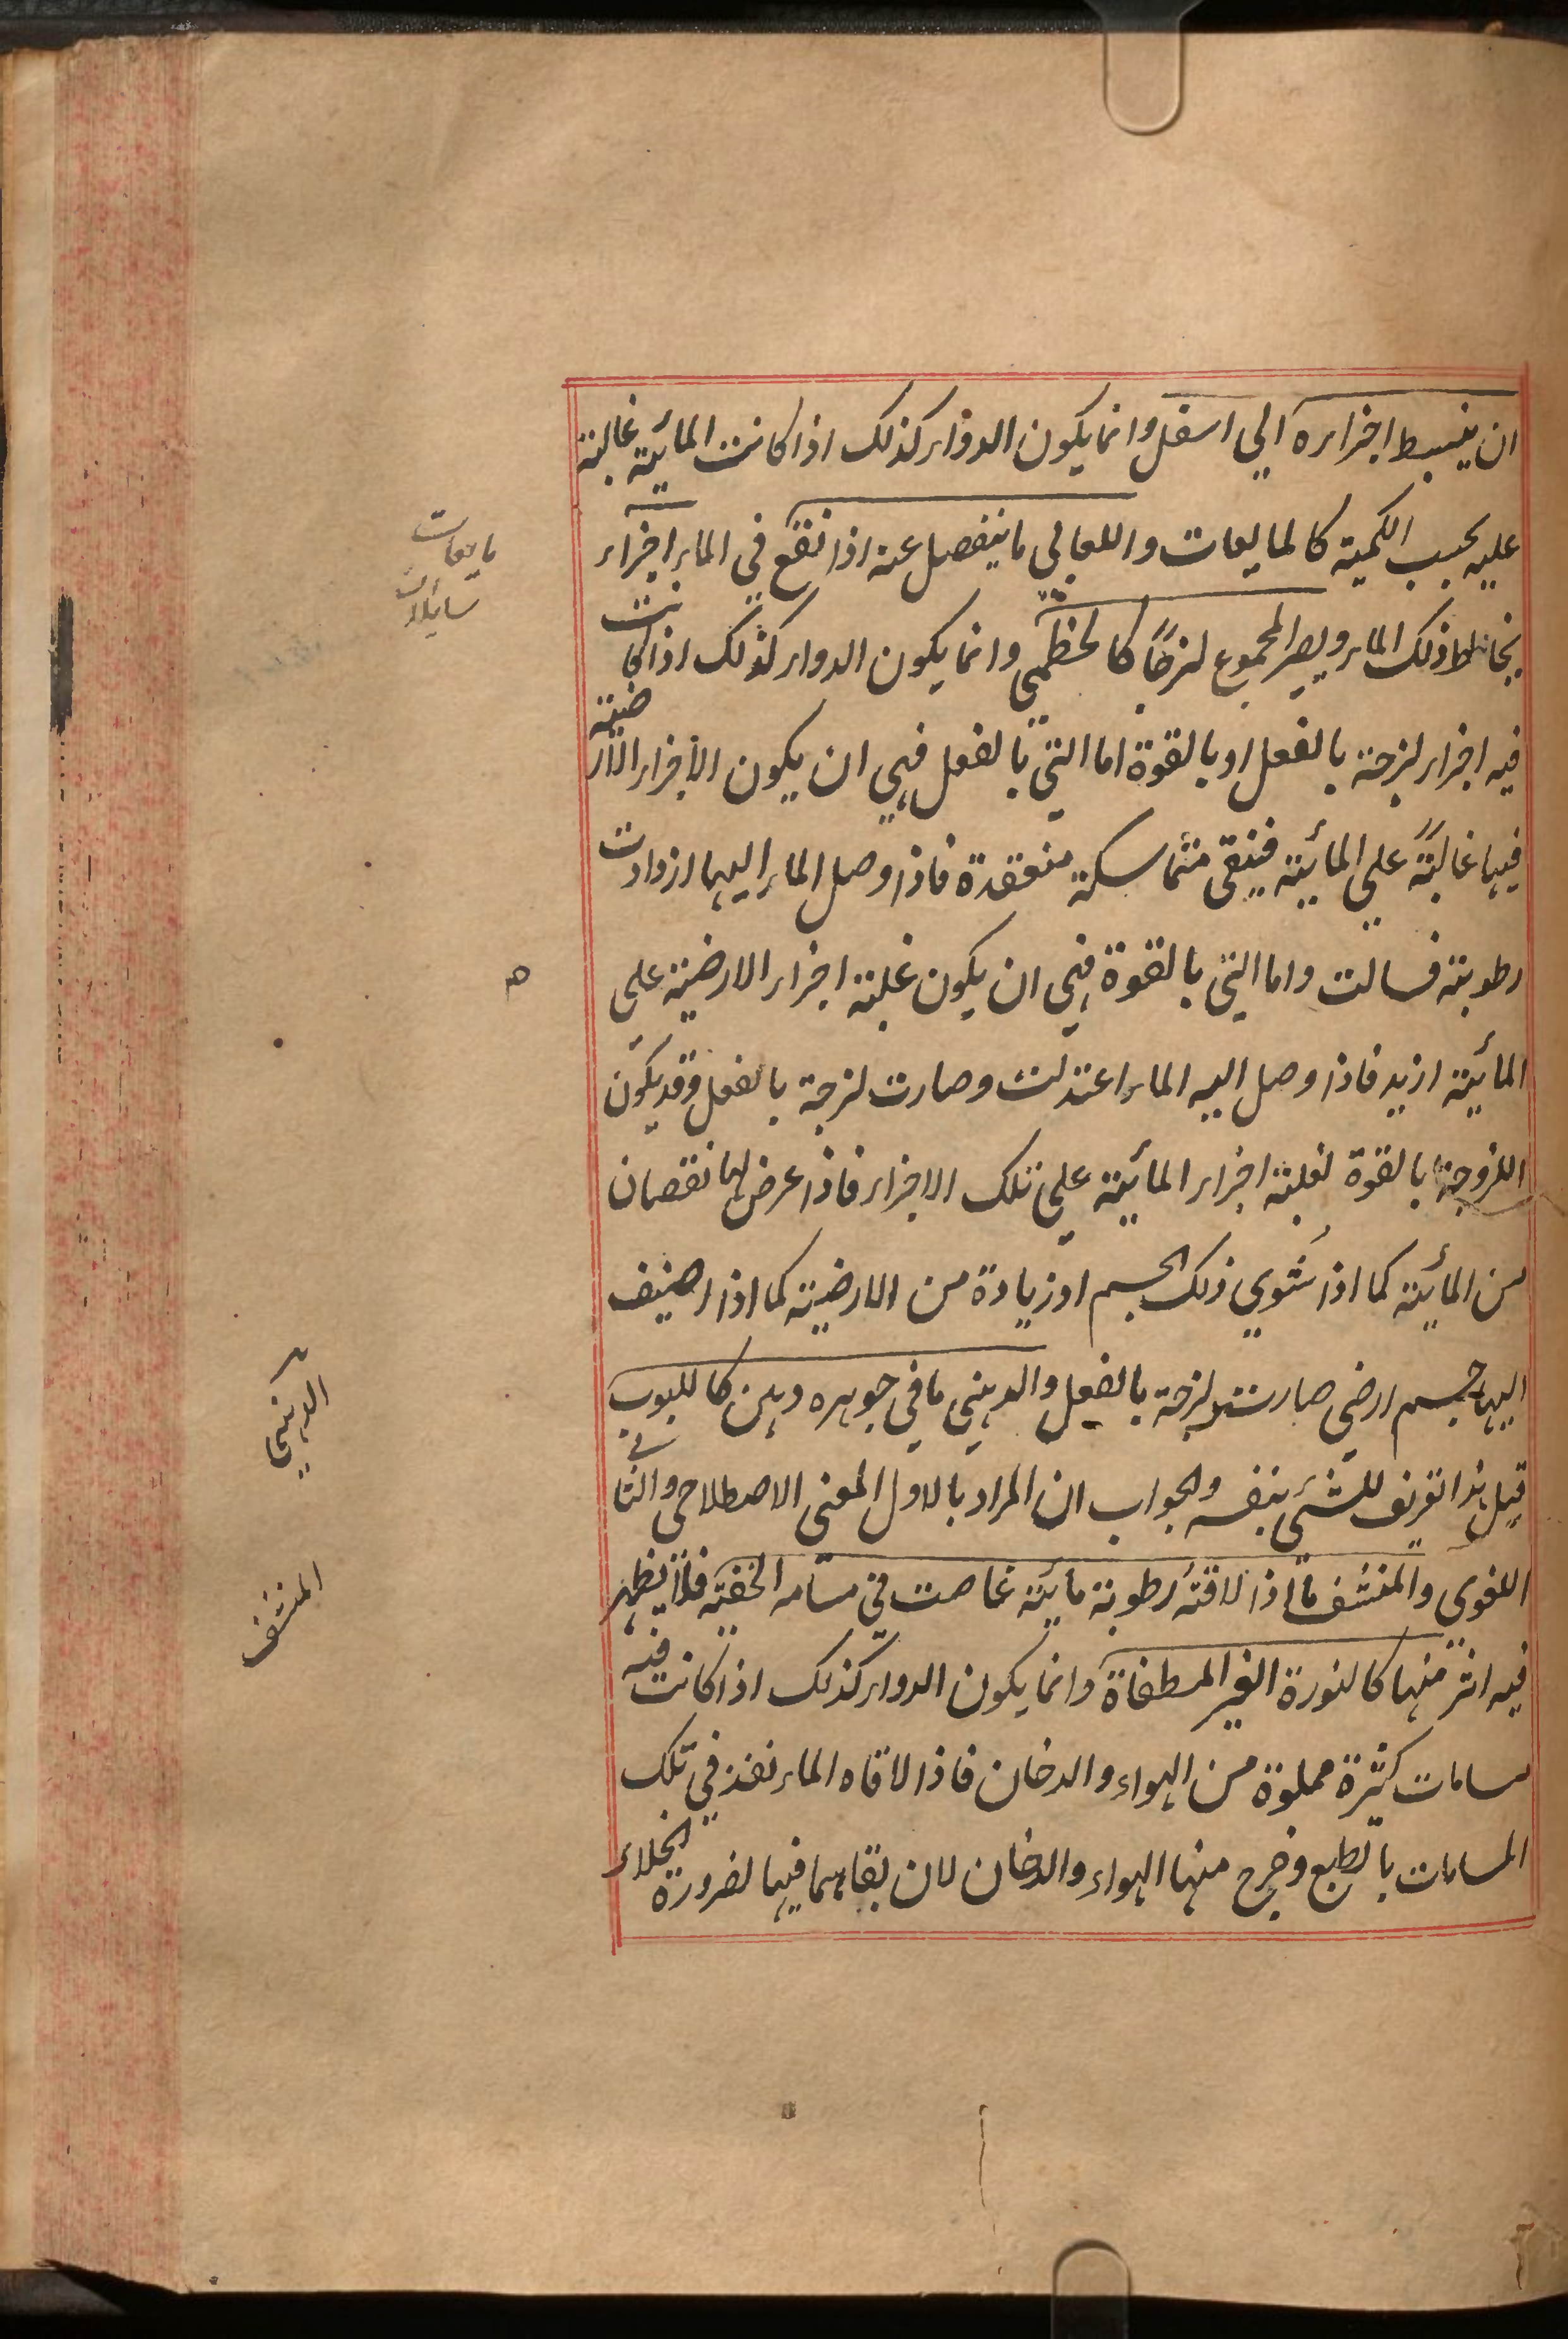 ان ينبسط اجزاءه الي اسفل وانما يكون الدواء كذلك اذا كانت المائية غالبة
عليه بحسب الكمية كالمايعات واللعابي ما ينفصل عنه اذا نقع في الماء اجزاء
يخالط ذلك الماء ويصير المجموع لزجًا كالخطمي وانما يكون الدواء كذلك اذا كانت
فيه اجزاء لزجة بالفعل او بالقوة اما التي بالفعل فهي ان يكون الاجزاء الارضية
فيها غالبةً علي المائية فيبقي متماسكة منعقدة فاذا وصل الماء اليها ازدادت
رطوبة فسالت واما التي بالقوة فهي ان يكون غلبة اجزاء الارضية علي
المائية ازيد فاذا وصل اليه الماء اعتدلت وصارت لزجة بالفعل وقد يكون
اللزوجة بالقوة لغلبة اجزاء المائية علي تلك الاجزاء فاذا عرض لها نقصان
من المائية كما اذا شوي ذلك الجسم او زيادة من الارضية كما اذا اضيف
اليها جسم ارضي صارت لزجة بالفعل والدهني ما في جوهره دهن كاللبوب
قيل هذا تعريف للشيء بنفسه والجواب ان المراد بالاول المعنى الاصطلاحي والثاني
اللغوي والمنشف ما اذا لاقته رطوبة مائية غاصت في مسامه الخفية فلا يظهر
فيه اثر منها كالنورة الغير المطفاة وانما يكون الدواء كذلك اذا كانت فيه
مسامات كثيرة مملوة من الهواء والدخان فاذا لاقاه الماء نفذ في تلك
المسامات بالطبع وخرج منها الهواء والدخان لان بقاهما فيها لضرورة الخلاء
مايعات
سايلات
الدهني
المنشف